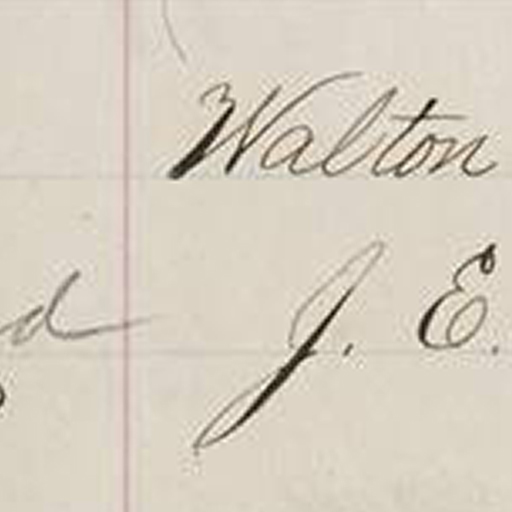 Walton
J. E.